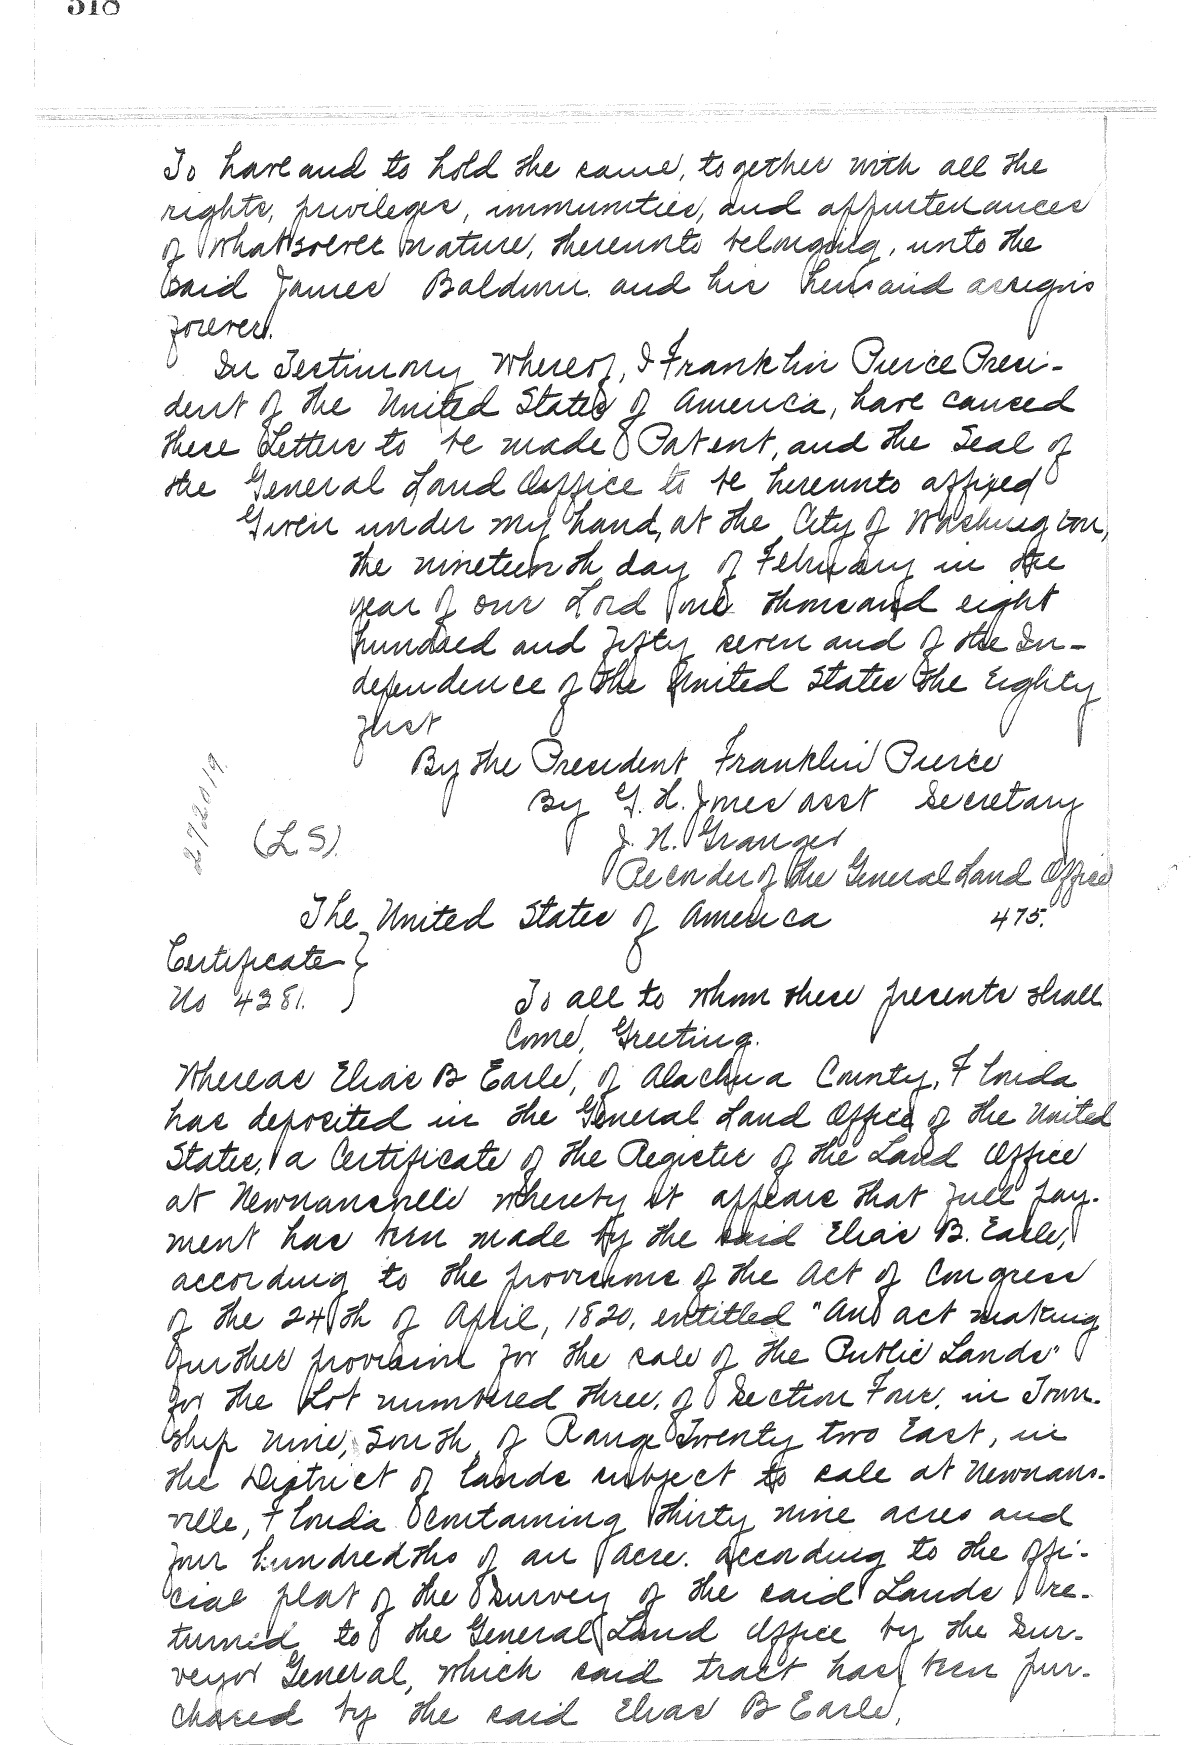 518
To have and to hold the same, together with all the
rights, privileges, immunities, and appurtenances
of whatsoever nature, thereunto belonging, unto the
said James Baldwin and his heirs and assigns
forever.
In Testimony Whereof, I Franklin Pierce Presi-
dent of the United States of America, have caused
these Letters to be made Patent, and the Seal of
the General Land Office to be hereunto affixed
Given under my hand, at the City of Washington,
the nineteenth day of February in the
year of our Lord one thousand eight
hundred and fifty seven and of the In-
dependence of the United States the Eighty
first
By the President Franklin Pierce
By G. H. Jones asst Secretary
272019.
(L S).
J. N. Granger
Recorder of the General Land Office
The United States of America 475.
Certificate }
No 4381.
To all to whom these presents shall
Come, Greeting.
Whereas Elias B Earle, of Alachua County, Florida
has deposited in the General Land Office of the United
States, a Certificate of the Register of the Land Office
at Newnansville whereby it appears that full pay-
ment has been made by the said Elias B. Earle,
according to the provisions of the Act of Congress
of the 24th of April, 1820, entitled "An act making
further provision for the sale of the Public Lands"
for the Lot numbered three, of Section Four, in Town-
ship nine, South, of Range Twenty two East, in
the District of lands subject to sale at Newnans-
ville, Florida containing thirty nine acres and
four hundredths of an acre. according to the offi-
cial plat of the Survey of the said Lands re-
turned to the General Land Office by the Sur-
veyor General, which said tract has been pur-
chased by the said Elias B Earle,